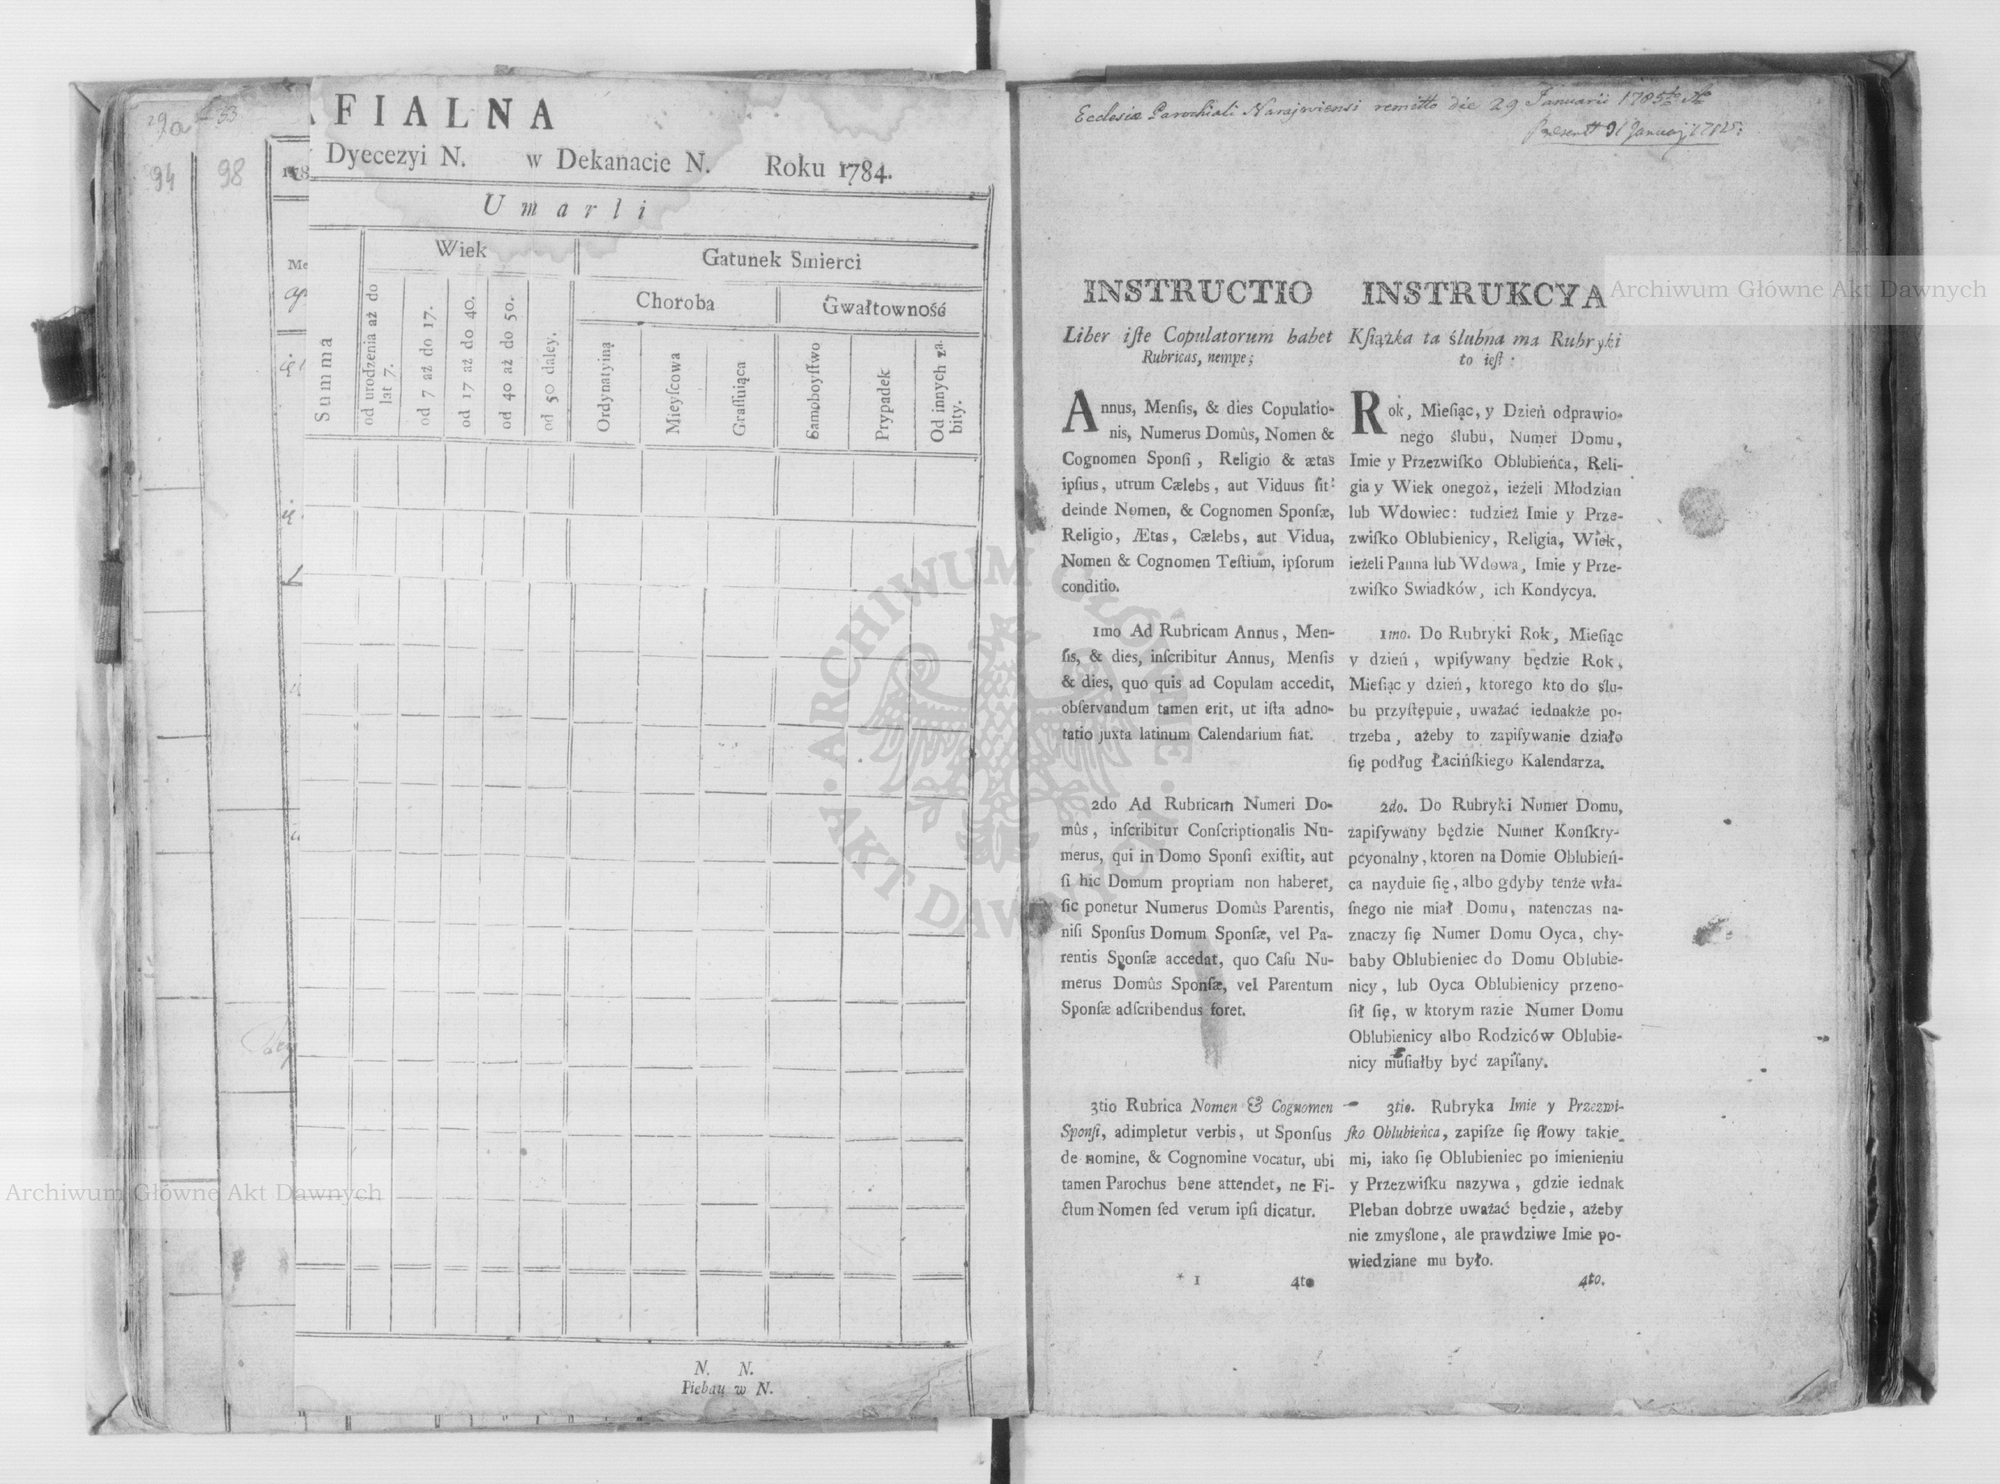 29a 33
94
98
178
FIALNA
Dyecezyi N. w Dekanacie N. Roku 1784.
Umarli
Wiek
Gatunek Smierci
Choroba
Gwałtowność
Summa
od urodzenia aż do lat 7.
od 7 aż do 17.
od 17 aż do 40.
od 40 aż do 50.
od 50 daley.
Ordynatyiną
Mieyſcowa
Graſſuiąca
Samoboyſtwo
Prypadek
Od innych zabity.
N. N.
Pleban w N.
Ecclesiæ Parochiali Narajoviensi remitto die 29 Januarii 1785
INSTRUCTIO
Liber iſte Copulatorum habet
Rubricas, nempe;
Annus, Menſis, & dies Copulatio-
nis, Numerus Domûs, Nomen &
Cognomen Sponſi, Religio & ætas
ipſius, utrum Cælebs, aut Viduus ſit:
deinde Nomen, & Cognomen Sponſæ,
Religio, Ætas, Cælebs, aut Vidua,
Nomen & Cognomen Teſtium, ipſorum
conditio.
1mo Ad Rubricam Annus, Men-
ſis, & dies, inſcribitur Annus, Menſis
& dies, quo quis ad Copulam accedit,
obſervandum tamen erit, ut iſta adno-
tatio juxta latinum Calendarium fiat.
2do Ad Rubricam Numeri Do-
mûs, inſcribitur Conſcriptionalis Nu-
merus, qui in Domo Sponſi exiſtit, aut
ſi hic Domum propriam non haberet,
ſic ponetur Numerus Domûs Parentis,
niſi Sponſus Domum Sponſæ, vel Pa-
rentis Sponſæ accedat, quo Caſu Nu-
merus Domûs Sponſæ, vel Parentum
Sponſæ adſcribendus foret.
3tio Rubrica Nomen & Cognomen
Sponſi, adimpletur verbis, ut Sponſus
de nomine, & Cognomine vocatur, ubi
tamen Parochus bene attendet, ne Fi-
ctum Nomen ſed verum ipſi dicatur.
* 1 4to
INSTRUKCYA
Kſiążka ta ślubna ma Rubryki
to ieſt:
Rok, Mieſiąc, y Dzień odprawio-
nego ślubu, Numer Domu,
Imie y Przezwiſko Oblubieńca, Reli-
gia y Wiek onegoż, ieżeli Młodzian
lub Wdowiec: tudzież Imie y Prze-
zwiſko Oblubienicy, Religia, Wiek,
ieżeli Panna lub Wdowa, Imie y Prze-
zwiſko Swiadków, ich Kondycya.
1mo. Do Rubryki Rok, Mieſiąc
y dzień, wpiſywany będzie Rok,
Mieſiąc y dzień, ktorego kto do ślu-
bu przyſtępuie, uważać iednakże po-
trzeba, ażeby to zapiſywanie działo
ſię podług Łacińſkiego Kalendarza.
2do. Do Rubryki Numer Domu,
zapiſywany będzie Numer Konſkry-
pcyonalny, ktoren na Domie Oblubień-
ca nayduie ſię, albo gdyby tenże wła-
ſnego nie miał Domu, natenczas na-
znaczy ſię Numer Domu Oyca, chy-
baby Oblubieniec do Domu Oblubie-
nicy, lub Oyca Oblubienicy przeno-
ſił ſię, w ktorym razie Numer Domu
Oblubienicy albo Rodziców Oblubie-
nicy muſiałby być zapiſany.
3tio. Rubryka Imie y Przezwi-
ſko Oblubieńca, zapiſze ſię ſłowy takie-
mi, iako ſię Oblubieniec po imienieniu
y Przezwiſku nazywa, gdzie iednak
Pleban dobrze uważać będzie, ażeby
nie zmyślone, ale prawdziwe Imie po-
wiedziane mu było.
4to.
Archiwum Główne Akt Dawnych
Archiwum Główne Akt Dawnych
ARCHIWUM GŁÓWNE AKT DAWNYCH